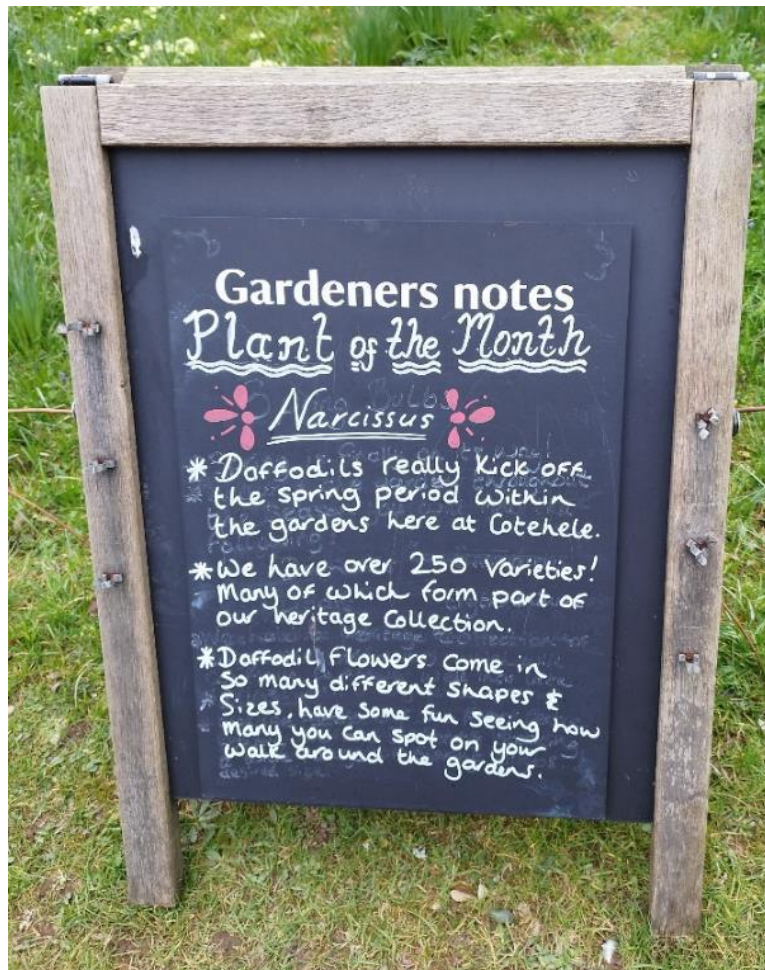 Gardeners notes
Plant of the Month
Narcissus
* Daffodils really kick off
the spring period within
the gardens here at Cotehele.
* We have over 250 varieties!
Many of which form part of
our heritage collection.
* Daffodil flowers come in
so many different shapes &
sizes, have some fun seeing how
many you can spot on your
walk around the gardens.